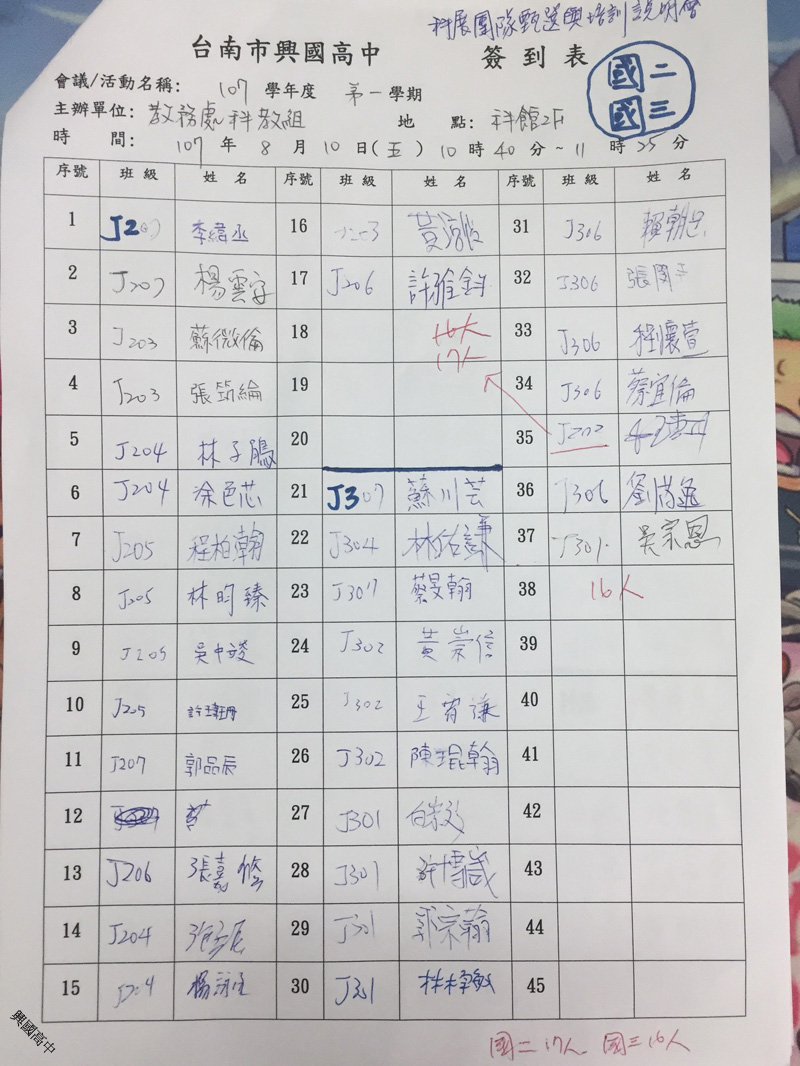 科展團隊甄選與培訓說明會
台南市興國高中 簽到表
國二
國三
會議/活動名稱: 107 學年度 第一學期
主辦單位: 教務處科教組 地 點: 科館2F
時 間: 107 年 8 月 10 日(五) 10 時 40 分~11 時 25 分
序號 班 級 姓 名 序號 班 級 姓 名 序號 班 級 姓 名
1 J207 李緯丞 16 J203 31 J306
2 J207 楊雲 17 J206 許雅 32 J306 張
3 J203 蘇微倫 18 16人 33 J306 程懷萱
17人
4 J203 張筑綸 19 34 J306 蔡宜倫
5 J204 林子鵑 20 35 J202
6 J204 涂邑芯 21 J307 蘇川芸 36 J306 劉
7 J205 程柏翰 22 J304 林佑謙 37 J301 吳宗恩
8 J205 林昀臻 23 J307 蔡旻翰 38 16人
9 J205 吳中 24 J302 黃崇信 39
10 J205 25 J302 王宥謙 40
11 J207 郭品辰 26 J302 陳琨翰 41
12 27 J301 42
13 J206 張嘉修 28 J301 許博崴 43
14 J204 張 29 J301 郭宗翰 44
15 J204 楊 30 J301 林 45
國二17人、國三16人
興國高中